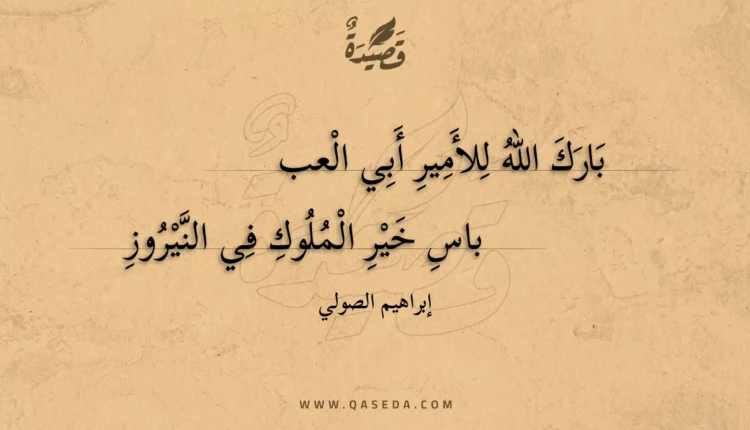 قَصِيْدَةٌ
بَارَكَ اللهُ لِلأَمِيرِ أَبِي الْعب
باسِ خَيْرِ الْمُلُوكِ فِي النَّيْرُوزِ
إبراهيم الصولي
WWW.QASEDA.COM